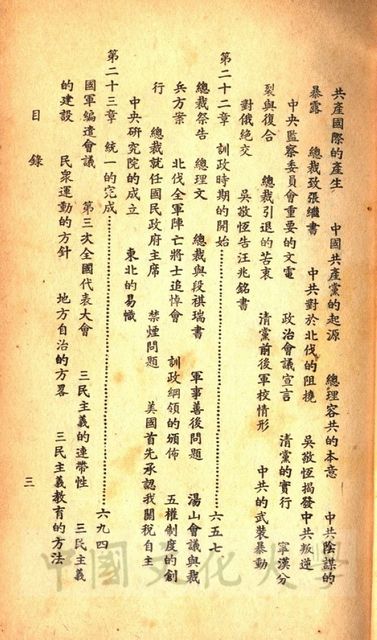 共產國際的產生　中國共產黨的起源　總理容共的本意　中共陰謀的
暴露　總裁致張繼書　中共對於北伐的阻撓　吳敬恆揭發中共叛逆
中央監察委員會重要的文電　政治會議宣言　清黨的實行　寧漢分
裂與復合　總裁引退的苦衷　清黨前後軍校情形　中共的武裝暴動
對俄絕交　吳敬恆告汪兆銘書
第二十二章　訓政時期的開始……六五七
總裁祭告　總理文　總裁與段祺瑞書　軍事善後問題　湯山會議與裁
兵方案　北伐全軍陣亡將士追悼會　訓政綱領的頒佈　五權制度的創
行　總裁就任國民政府主席　禁煙問題　美國首先承認我關稅自主
中央研究院的成立　東北的易幟
第二十三章　統一的完成……六九四
國軍編遣會議　第三次全國代表大會　三民主義的連帶性　三民主義
的建設　民衆運動的方針　地方自治的方畧　三民主義教育的方法
目錄　三
中國文化大學